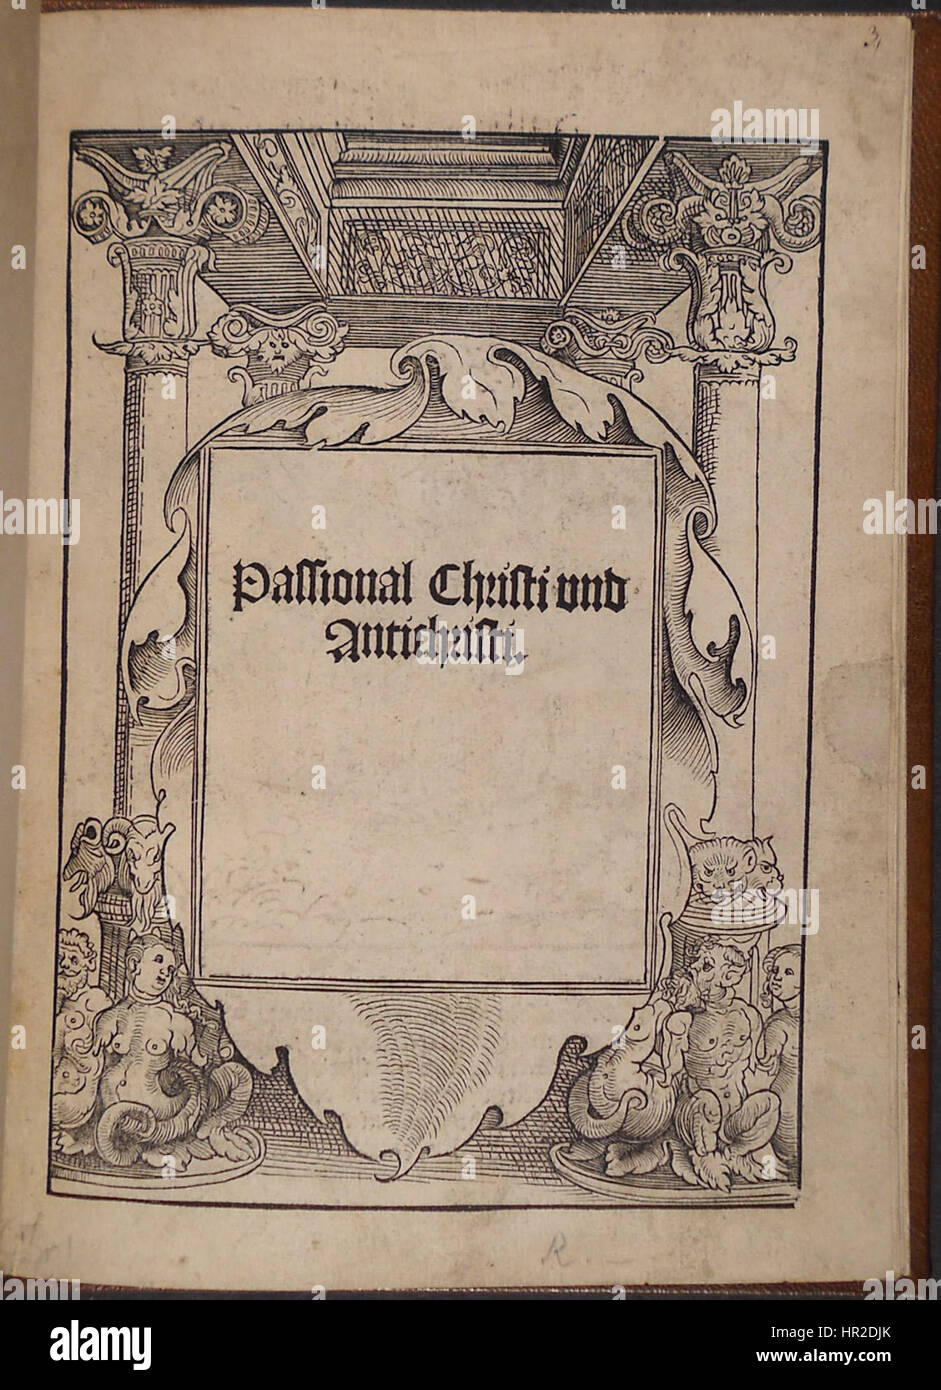 3,
Passional Christi und
Antichristi.
R
alamy
Image ID: HR2DJK
www.alamy.com